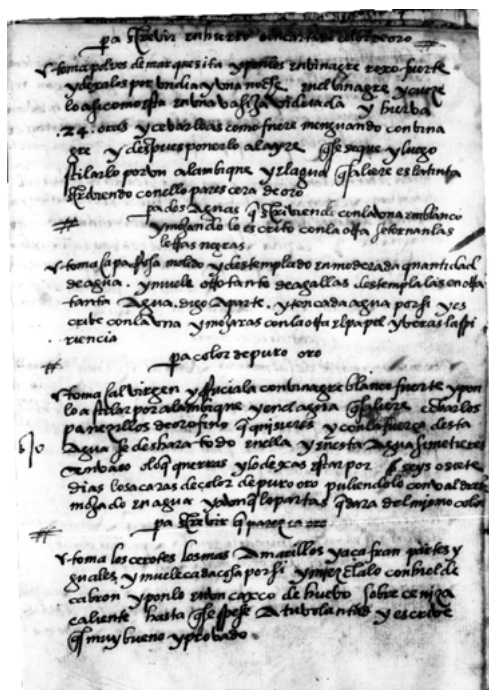 pa screvir en huerto o en carta de color de oro
toma polvos de marquesita y ponlos en vinagre rexo fuerte
y dexalos por un dia y una noche en el vinagre y cueze
lo asi como esta en una vasija vidriada y hierva
.24. oras y cevarlo as como fuere menguando con vina
gre y despues ponerlo al ayre q̃ se seque y luego
stilarlo por un alambique y el agua q̃ saliere es la tinta
screviendo con ello parescera de oro
pa dos Aguas q̃ screviendo con la una en blanco
y mojando lo escrito con la otra se tornan las
letras negras
toma molido y destemplado en moderada quantidad
de agua. y muele otro tanto de agallas destemplalas en otra
tanta Agua. digo Aparte. y ten cada agua por si y es
crive con la una y mojaras con la otra el papel y veras la spi
riencia
pa color de puro oro
toma sal virgen y con vinagre blanco fuerte y pon
lo a stilar por alambique y en el agua q̃ saliere echarlos
panezillos de oro fino q̃ quisieres y con la fuerça desta
Agua se deshara todo en ella y en esta Agua si metieres
un vaso o lo q̃ querras y lo dexas estar por seys o siete
dias lo sacaras de color de puro oro puliendolo con
mojado en agua y aunq̃ lo partas q̃dara del mismo colo
pa screvir q̃ paresca oro
toma los cerotes los mas Amarillos y acafran partes y
guales y muele cada cosa por si y mezclalo con hiel de
cabron y ponlo en un caxco de huebo sobre ceniza
caliente hasta q̃ se spese A tu volantad y escrive
q̃s muy bueno y provado.